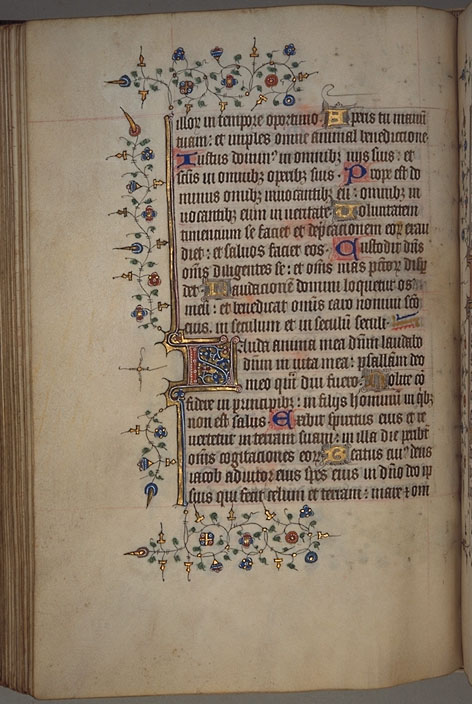 illor in tempore oportuno. Aperis tu manū
tuam: et imples omne animal benediccione
Iustus domin9 in omnibz vijs suis: et
scūs in omnibz operibz suis. Prope est do
minus omnibz inuocantibz eū: omnibz in
uocantibz eum in ueritate. Voluntatem
timencium se faciet et dep̄cacionem eor exau
diet: et saluos faciet eos. Custodit dn̄s
om̄s diligentes se: et om̄s peccōr disp
det. Laudacionē domini loquetur os
meū: et benedicat omīs caro nomini scō
eius. in seculum et in seculū seculi.
Lauda anima mea dn̄m laudabo
dn̄m in uita mea: psallam deo
meo qm̄ diu fuero. Nolite cō
fidere in principibz: in filijs hominū in qibz
non est salus. Exibit spiritus eius et re
uertetur in terram suam: in illa die peribt
om̄s cogitaciones eor. Beatus cui9 deus
iacob adiutor eius spes eius in dn̄o deo ip
sius qui fecit celum et terram: mare ⁊ om